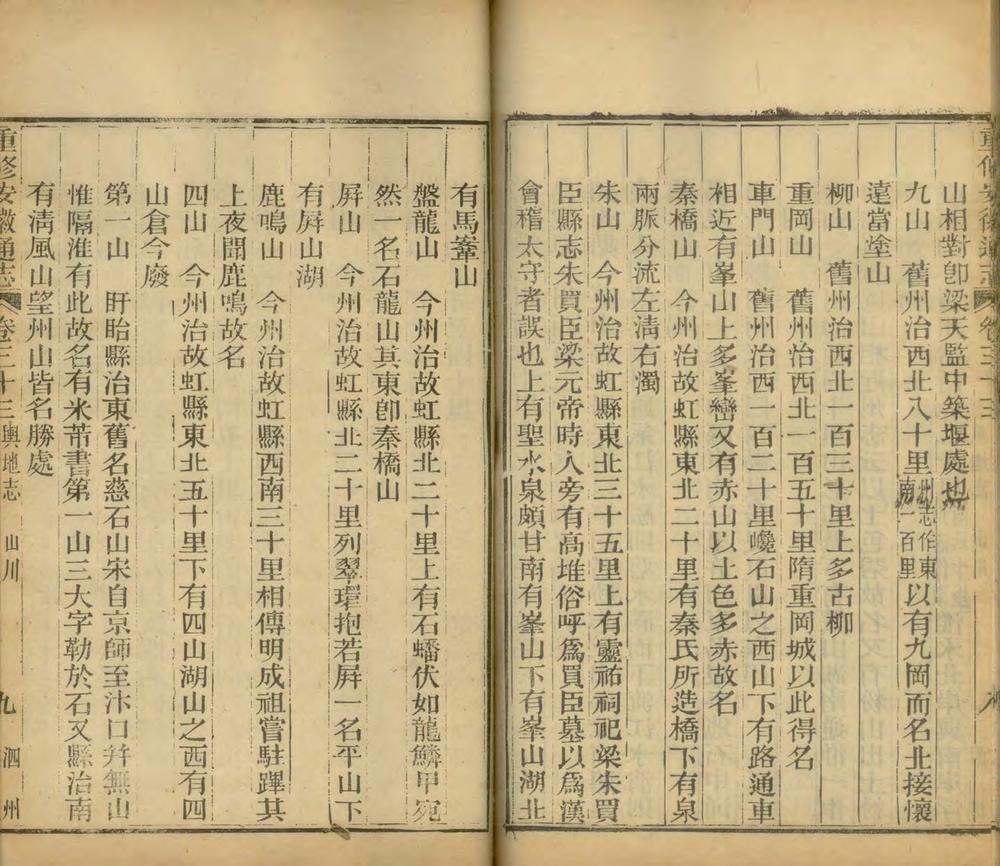 重修安徽通志 卷三十三
山相對卽梁天監中築堰處也
九山　舊州治西北八十里州志作東南一百里以有九岡而名北接懷
遠當塗山
柳山　舊州治西北一百三十里上多古柳
重岡山　舊州治西北一百五十里隋重岡城以此得名
車門山　舊州治西一百二十里巉石山之西山下有路通車
相近有峯山上多峯巒又有赤山以土色多赤故名
秦橋山　今州治故虹縣東北二十里有秦氏所造橋下有泉
兩脈分流左淸右濁
朱山　今州治故虹縣東北三十五里上有靈祐祠祀梁朱買
臣縣志朱買臣梁元帝時人旁有高堆俗呼爲買臣墓以爲漢
會稽太守者誤也上有聖水泉頗甘南有峯山下有峯山湖北
有馬鞌山
盤龍山　今州治故虹縣北二十里上有石蟠伏如龍鱗甲宛
然一名石龍山其東卽秦橋山
屏山　今州治故虹縣北二十里列翠環抱若屏一名平山下
有屏山湖
鹿鳴山　今州治故虹縣西南三十里相傳明成祖嘗駐蹕其
上夜聞鹿鳴故名
四山　今州治故虹縣東北五十里下有四山湖山之西有四
山倉今廢
第一山　盱眙縣治東舊名慈石山宋自京師至汴口幷無山
惟隔淮有此故名有米芾書第一山三大字勒於石又縣治南
有淸風山望州山皆名勝處
重修安徽通志 卷三十三 輿地志 山川 九 泗州